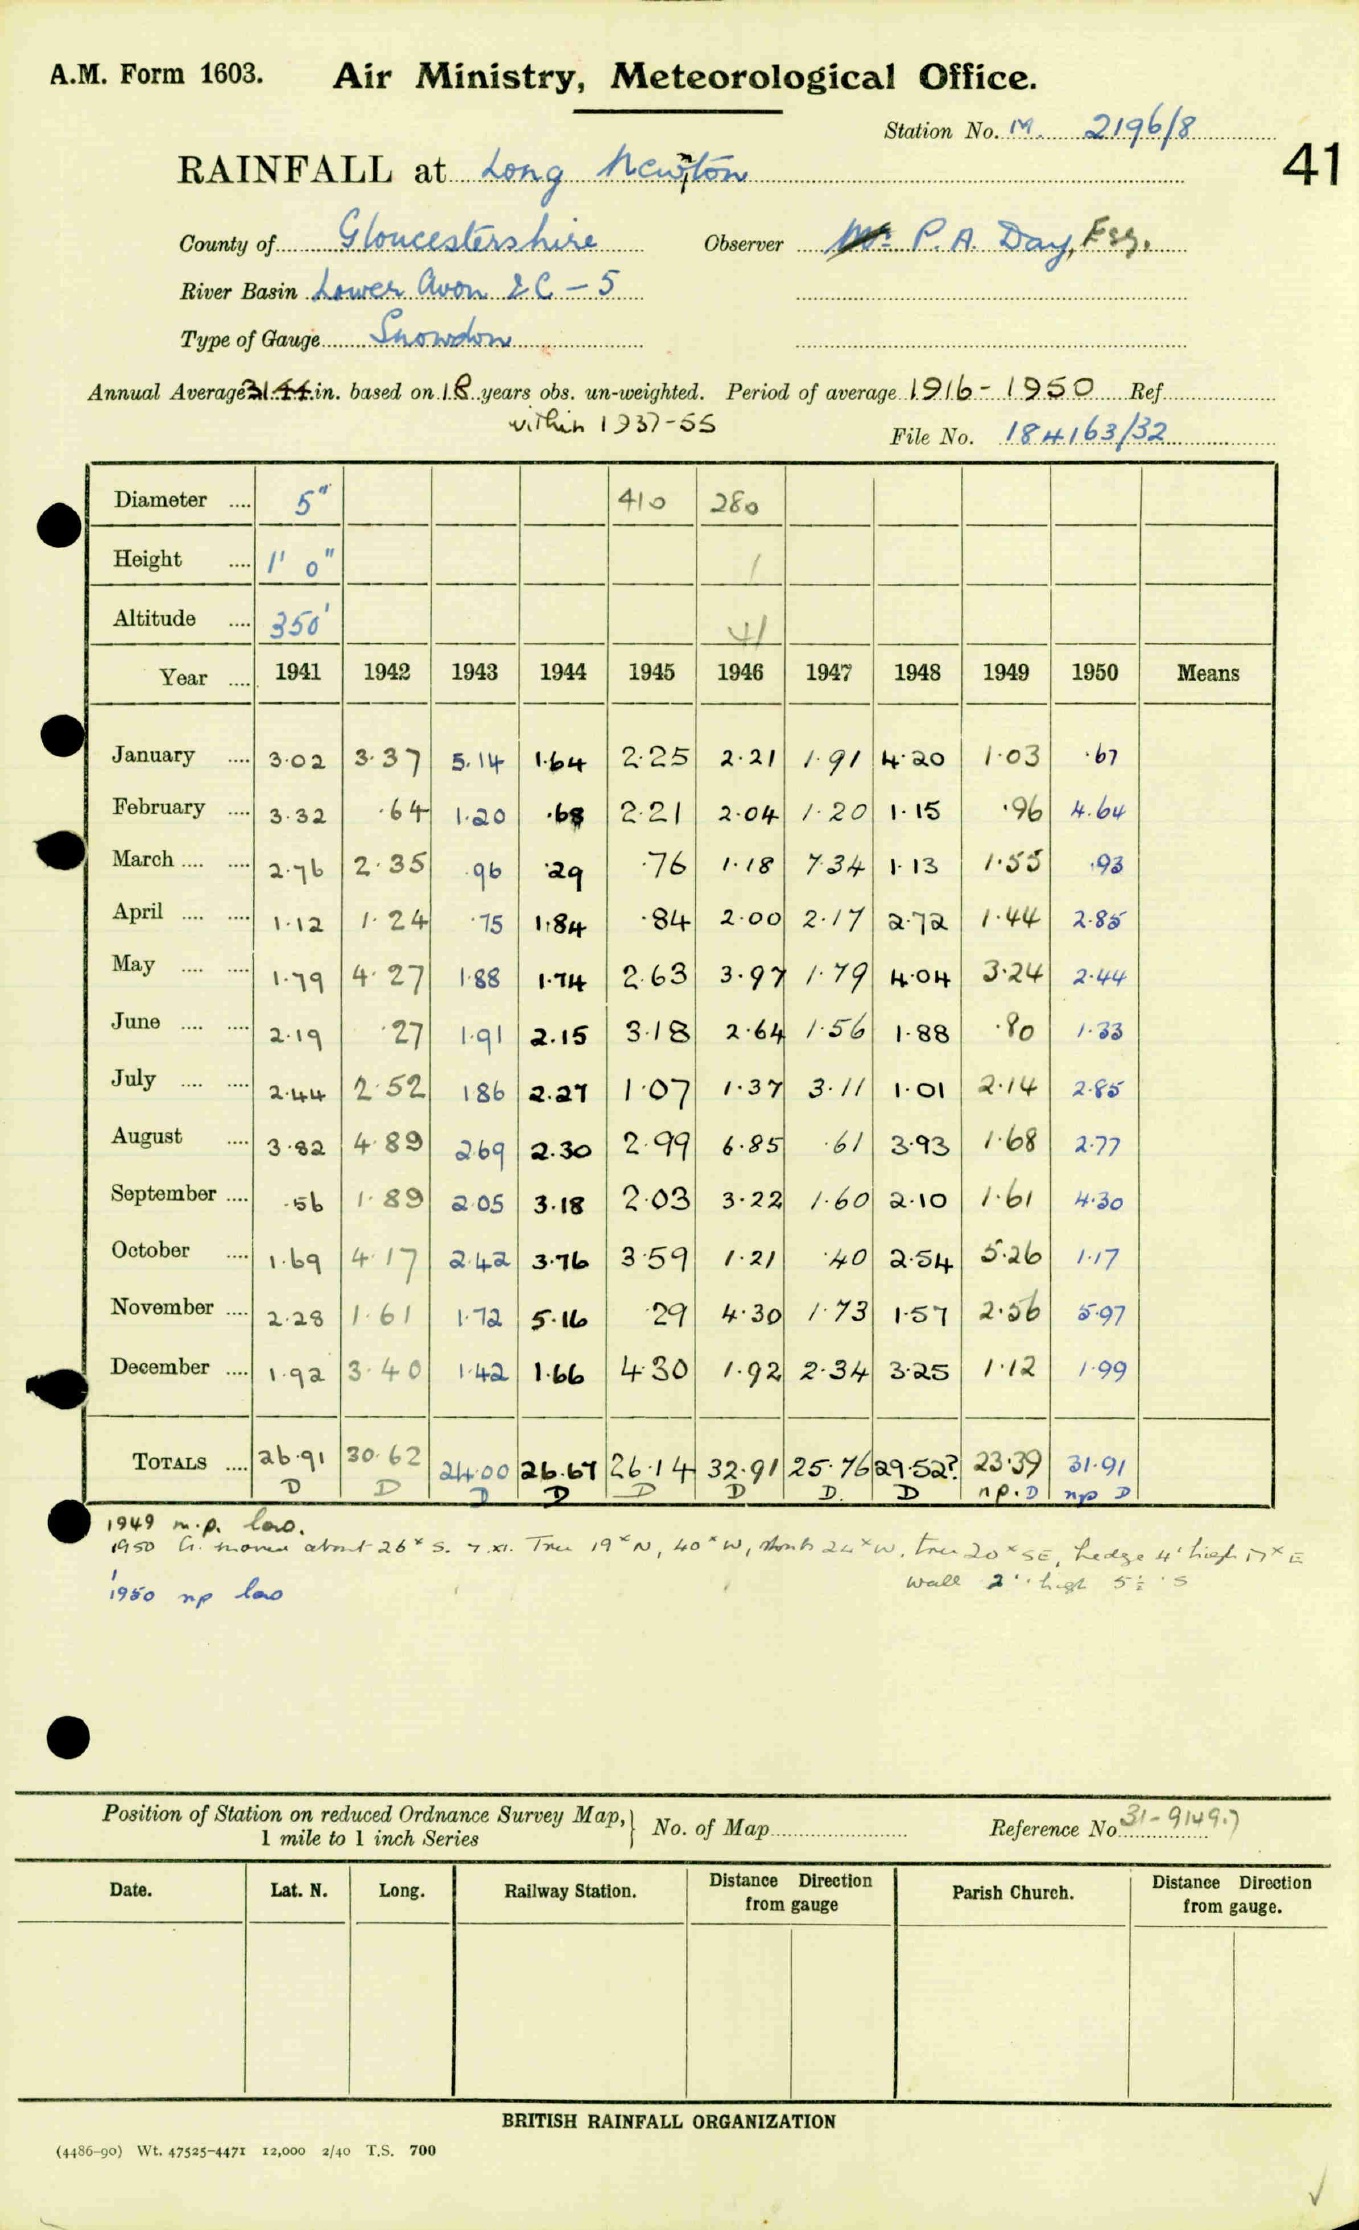 A.M. Form 1603. Air Ministry, Meteorological Office.
Station No. M. 2196/8
41
RAINFALL at Long Newnton
County of Gloucestershire Observer Mr P. A. Day, Esq.
River Basin Lower Avon &C - 5
Type of Gauge Snowdon
Annual Average 31.44 in. based on 18 years obs. un-weighted. Period of average 1916 - 1950 Ref
within 1937-55
File No. 184163/32
Diameter .... 5" 410 280
Height .... 1' 0" 1
Altitude .... 350' 41
Year .... 1941 1942 1943 1944 1945 1946 1947 1948 1949 1950 Means
January .... 3.02 3.37 5.14 1.64 2.25 2.21 1.91 4.20 1.03 .67
February .... 3.32 .64 1.20 .68 2.21 2.04 1.20 1.15 .96 4.64
March .... .... 2.76 2.35 .96 .29 .76 1.18 7.34 1.13 1.55 .93
April .... .... 1.12 1.24 .75 1.84 .84 2.00 2.17 2.72 1.44 2.85
May .... .... 1.79 4.27 1.88 1.74 2.63 3.97 1.79 4.04 3.24 2.44
June .... .... 2.19 .27 1.91 2.15 3.18 2.64 1.56 1.88 .80 1.33
July .... .... 2.44 2.52 1.86 2.27 1.07 1.37 3.11 1.01 2.14 2.85
August .... 3.82 4.89 2.69 2.30 2.99 6.85 .61 3.93 1.68 2.77
September .... .56 1.89 2.05 3.18 2.03 3.22 1.60 2.10 1.61 4.30
October .... 1.69 4.17 2.42 3.76 3.59 1.21 .40 2.54 5.26 1.17
November .... 2.28 1.61 1.72 5.16 .29 4.30 1.73 1.57 2.56 5.97
December .... 1.92 3.40 1.42 1.66 4.30 1.92 2.34 3.25 1.12 1.99
TOTALS .... 26.91 30.62 24.00 26.67 26.14 32.91 25.76 29.52? 23.39 31.91
D D D D D D D. D np. D np D
1949 m.p. low.
1950 G. moved about 26ˣ S. 7.XI. Tree 19ˣ N, 40ˣ W, 24ˣ W, tree 20ˣ SE, hedge 4' high 17ˣ E
wall 2' high 5½ˣ S
1950 np low
Position of Station on reduced Ordnance Survey Map, } No. of Map Reference No 31-9149.7
1 mile to 1 inch Series
Date. Lat. N. Long. Railway Station. Distance Direction from gauge Parish Church. Distance Direction from gauge.
BRITISH RAINFALL ORGANIZATION
(4486-90) Wt. 47525-4471 12,000 2/40 T.S. 700